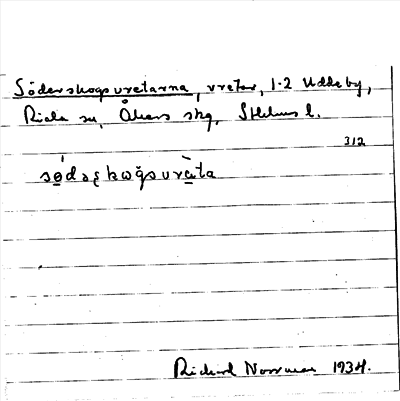 Söderskogsvretarna, vretar, 1-2 Uddeby,
Riala sn, Åkers skg, Sthlms l.
312
Richard Norrman 1934.